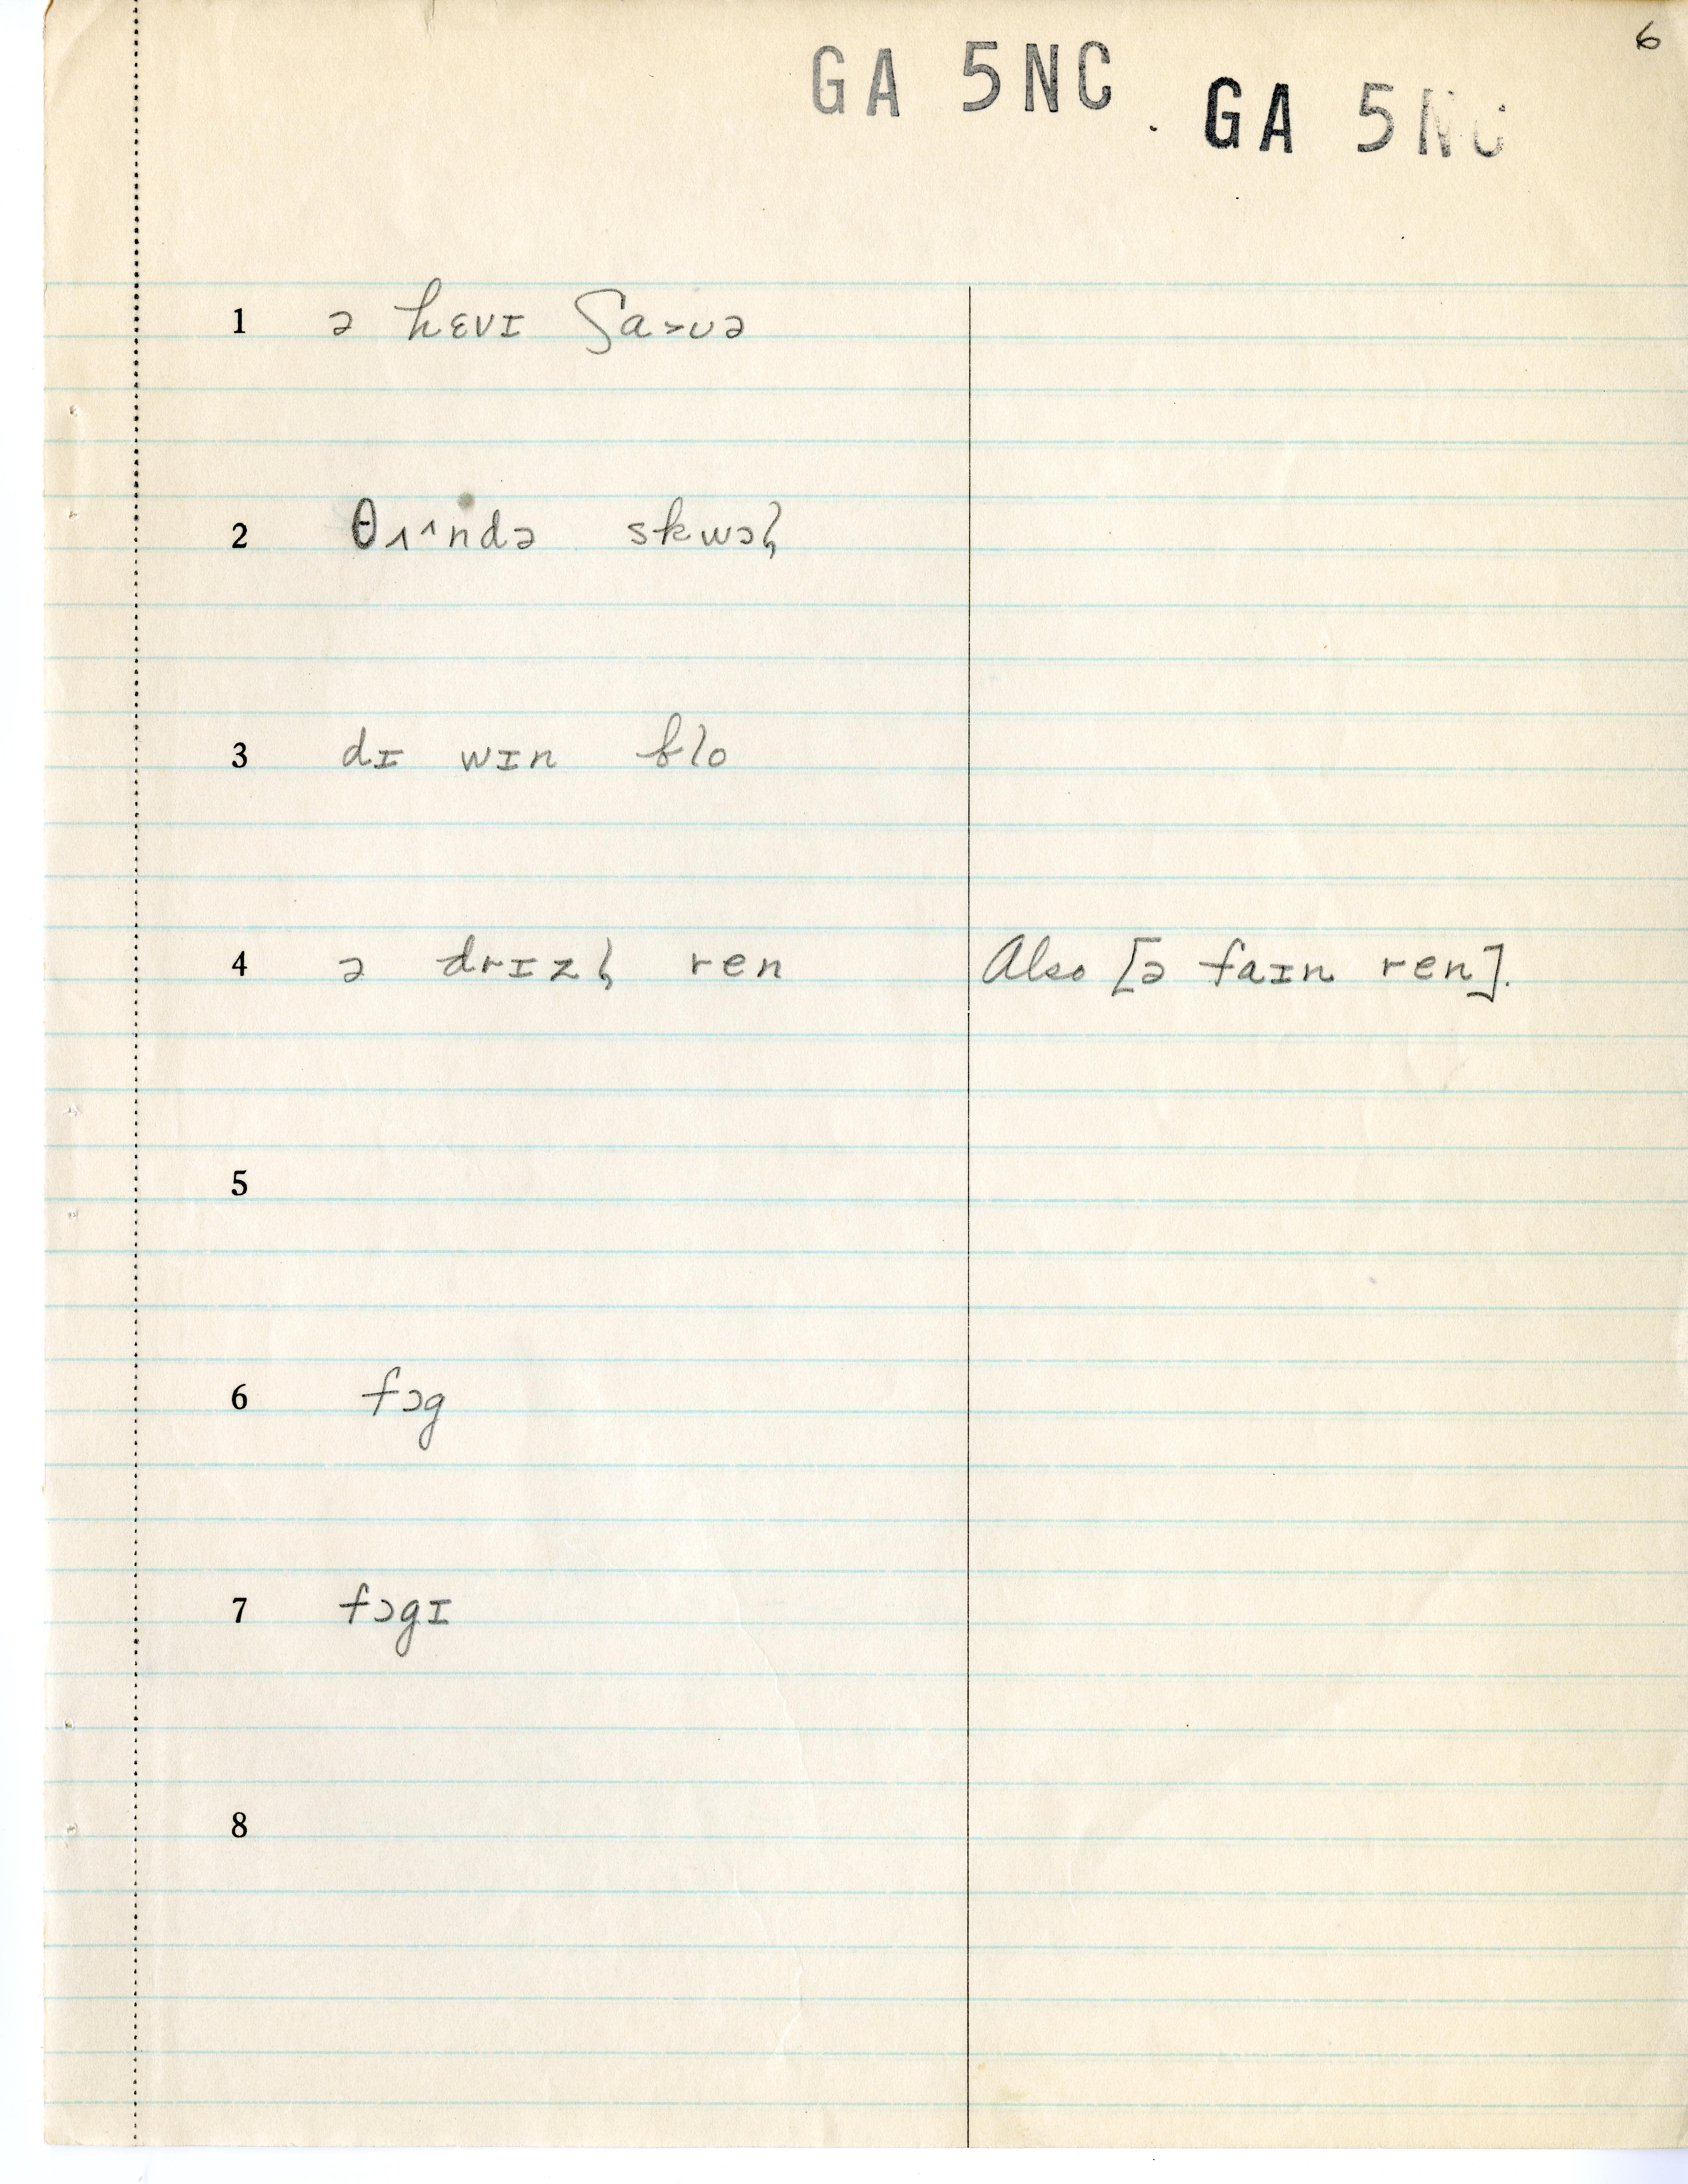 6
GA 5NC
GA 5NC
1 ə hɛvɪ ʃa>ʊə
2 θʌ^ndə skwɔɫ
3 dɪ wɪn blo
4 ə drɪzɫ ren Also [ə faɪn ren].
5
6 fɔg
7 fɔgɪ
8